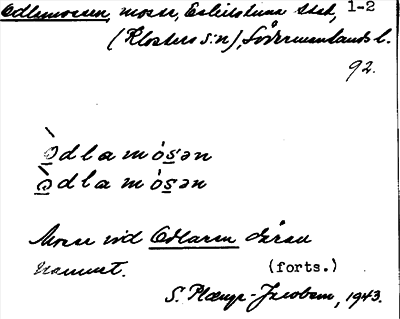 Odlamossen, mosse, Eskilstuna stad, 1-2
(Klosters s:n), Södermanlands l.
92.
òdlamósən
àdlamósən
Mosse vid Odlaren därav
namnet. (forts.)
S. Plænge-Jacobson, 1943.